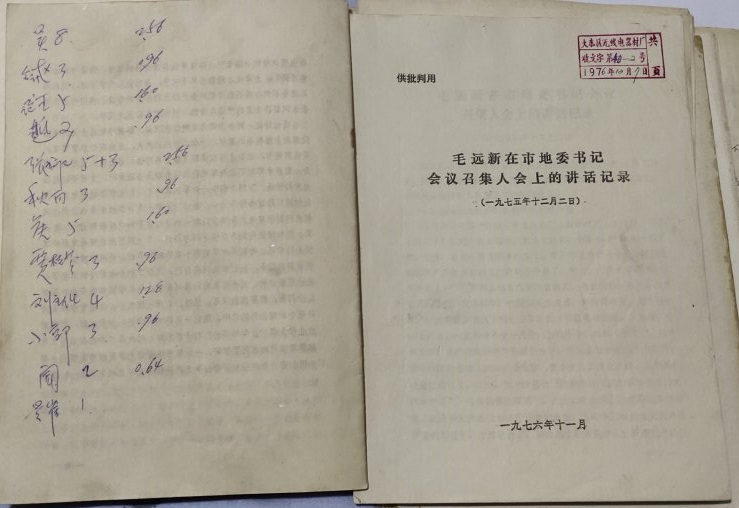 吴 8 2.56
赵 3 .96
5 1.60
赵 3 .96
张 5+3 2.56
秋 3 .96
侯 5 1.60
贾桂芳 3 .96
刘 4 1.28
小郭 3 .96
闻 2 0.64
崔 1
大东区无线电器材厂
收文字第40-2号
1976年12月9日
共
页
供批判用
毛远新在市地委书记
会议召集人会上的讲话记录
(一九七五年十二月二日)
一九七六年十一月